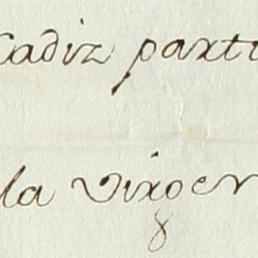 Cadiz parti
la vixoen